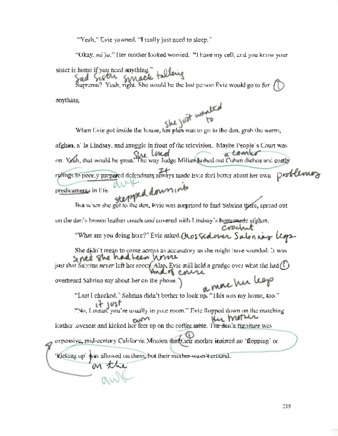 "Yeah," Evie yawned. "I really just need to sleep."
"Okay, mi'ja." Her mother looked worried. "I have my cell, and you know your
sister is home if you need anything."
Sabrina? Yeah, right. She would be the last person Evie would go to for
anything.
she just wanted
to
When Evie got inside the house, her plan was to go to the den, grab the warm,
afghan, a' la Lindsay, and snuggle in front of the television. Maybe People's Court was
She loved
on. Yeah, that would be great. The way Judge Milian dished out Cuban dichos and costly
rulings to poorly prepared defendants always made Evie feel better about her own
problems
predicaments in life.
awk
stepped down into
But when she got to the den, Evie was surprised to find Sabrina there, spread out
on the den's brown leather couch and covered with Lindsay's homemade afghan.
crochet
"What are you doing here?" Evie asked
crossed over Sabrina's legs
She didn't mean to come across as accusatory as she might have sounded. It was
just that Sabrina never left her room. Also, Evie still held a grudge over what she had
overheard Sabrina say about her on the phone.
"Last I checked," Sabrina didn't bother to look up, "This was my home, too."
it just
"No, I mean, you're usually in your room." Evie flopped down on the matching
leather loveseat and kicked her feet up on the coffee table. The den's furniture was
expensive, mid-century California Mission
their mother insisted no 'flopping' or
'kicking up' was allowed on them, but their mother wasn't around.
on the
awk
215